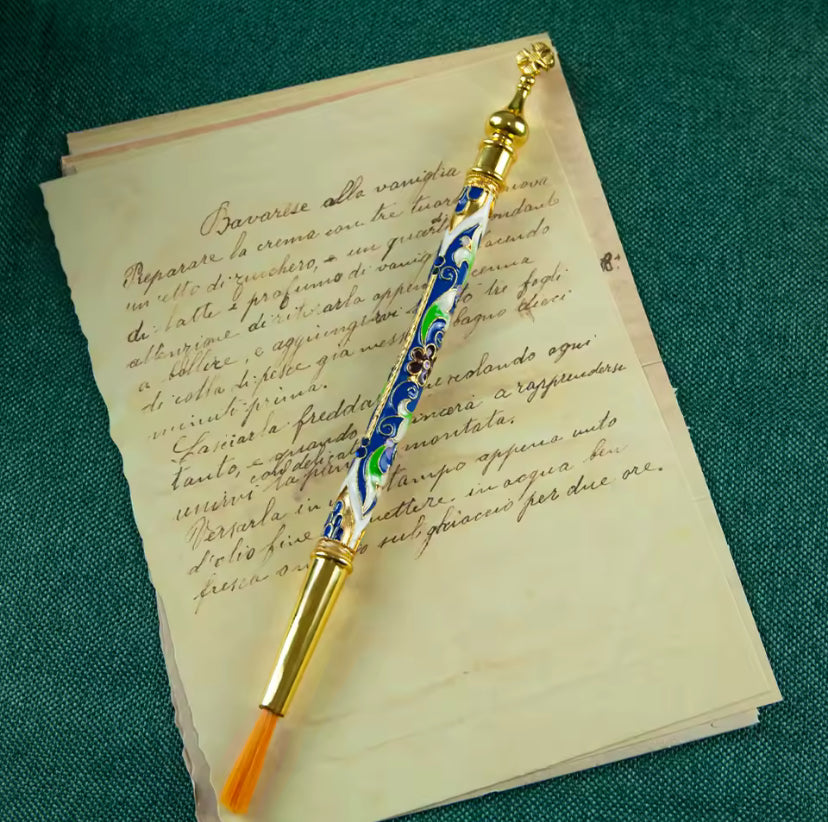 Bavarese alla vaniglia
Preparare la crema con tre tuor nova
un etto di zucchero, e un quart ondanti
di latte e profumo di vanig acendo
attenzione di ritirarla appen cenna
a bollire, e aggiungervi tò tre fogli
di colla di pesce già mess bagno dieci
minuti prima.
Lasciarla fredda mescolando ogni
tanto, e quando incerà a rapprendersi
con delicat
unirvi la pan montata.
Versarla in u stampo appena unto
d'olio fine mettere in acqua ben
fresca o sul ghiaccio per due ore.